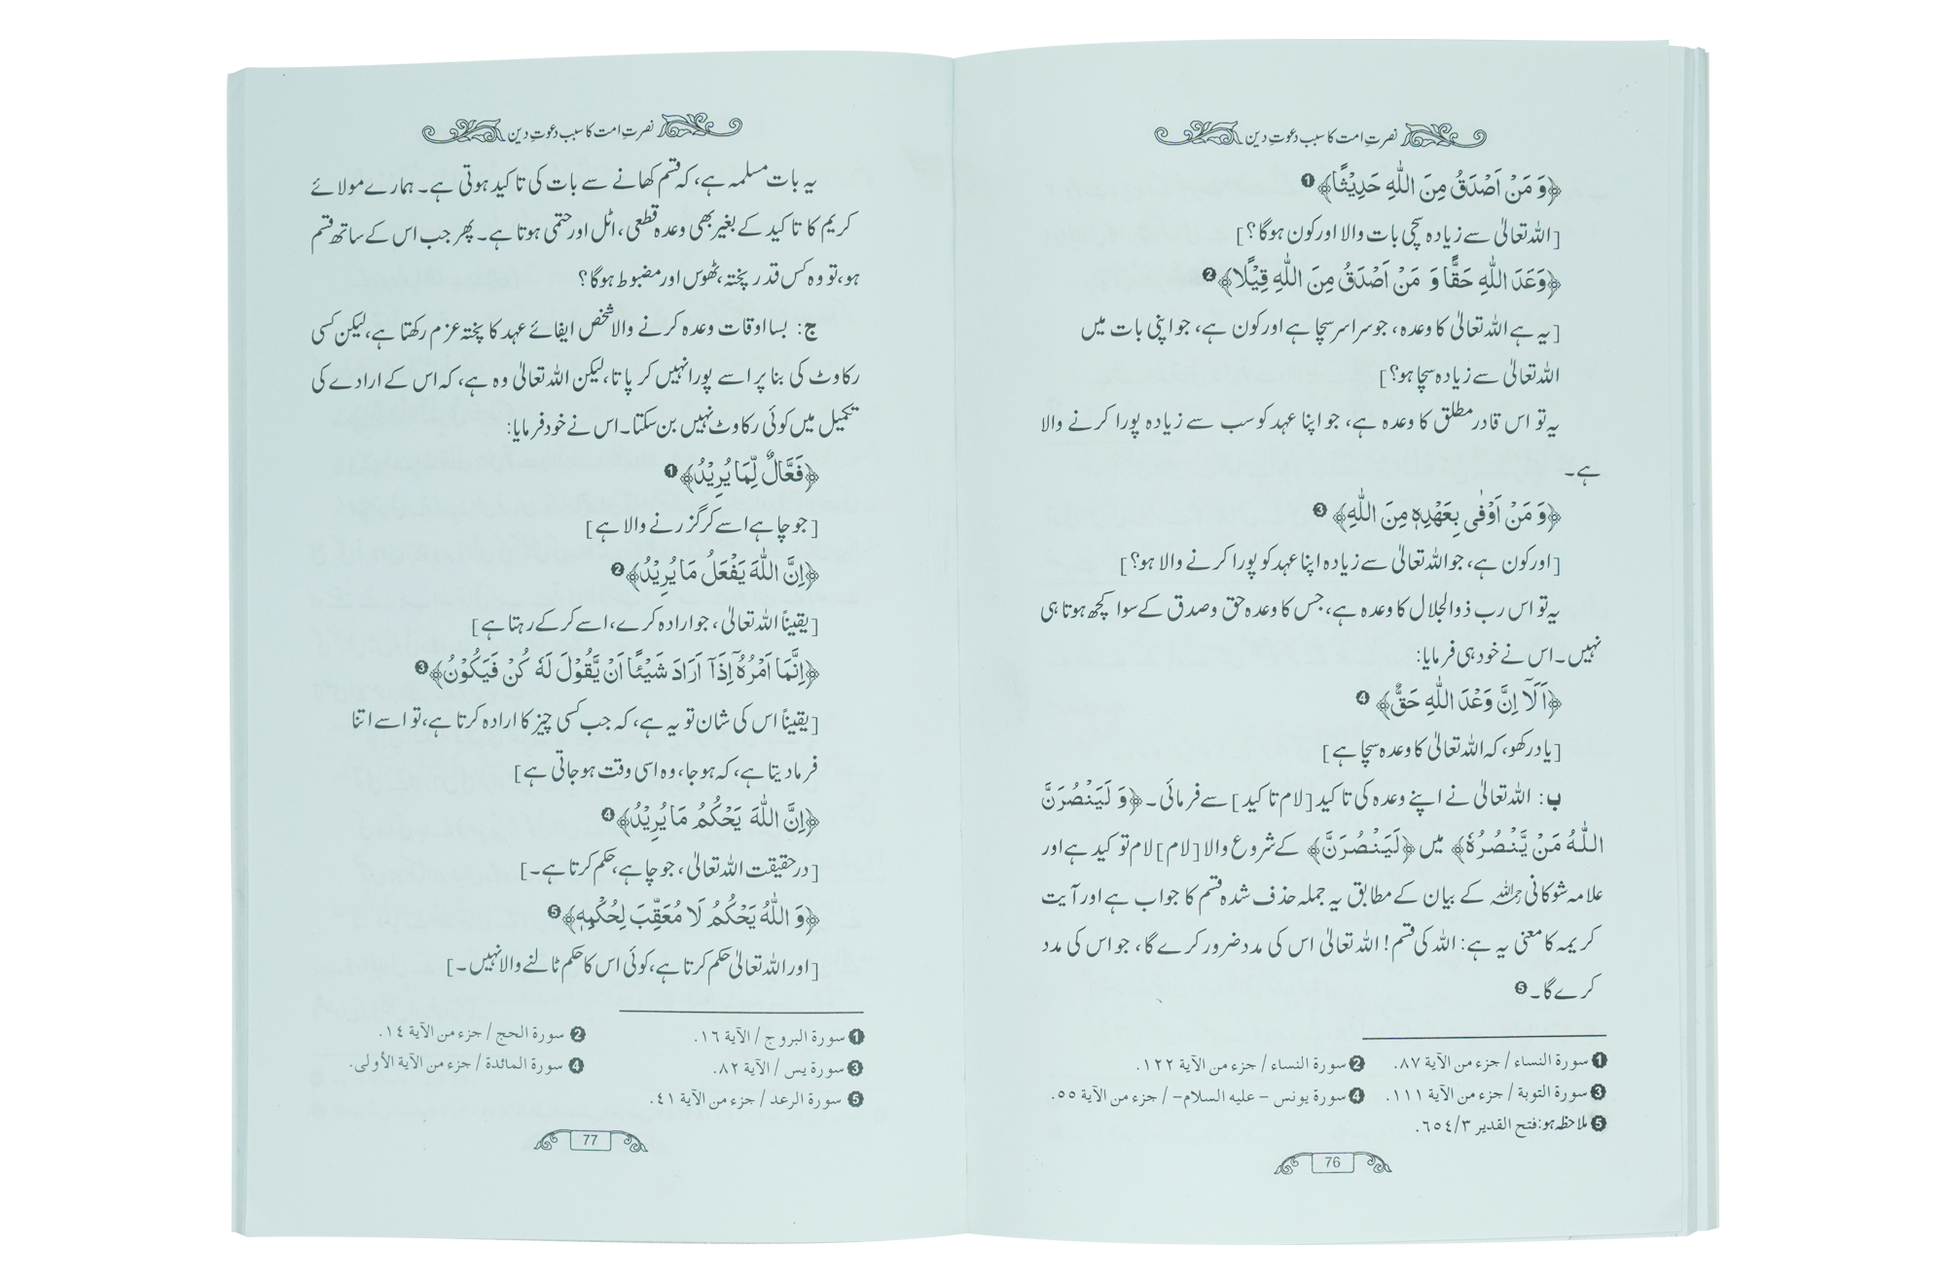 نصرتِ امت کا سبب دعوتِ دین
﴿وَ مَنْ اَصْدَقُ مِنَ اللّٰهِ حَدِيْثًا﴾ ❶
[اللہ تعالیٰ سے زیادہ سچی بات والا اور کون ہوگا؟]
﴿وَعَدَ اللّٰهِ حَقًّا وَ مَنْ اَصْدَقُ مِنَ اللّٰهِ قِيْلًا﴾ ❷
[یہ ہے اللہ تعالیٰ کا وعدہ، جو سراسر سچا ہے اور کون ہے، جو اپنی بات میں
اللہ تعالیٰ سے زیادہ سچا ہو؟]
یہ تو اس قادر مطلق کا وعدہ ہے، جو اپنا عہد کو سب سے زیادہ پورا کرنے والا
ہے۔
﴿وَ مَنْ اَوْفٰى بِعَهْدِهٖ مِنَ اللّٰهِ﴾ ❸
[اور کون ہے، جو اللہ تعالیٰ سے زیادہ اپنا عہد کو پورا کرنے والا ہو؟]
یہ تو اس رب ذوالجلال کا وعدہ ہے، جس کا وعدہ حق و صدق کے سوا کچھ ہوتا ہی
نہیں۔ اس نے خود ہی فرمایا:
﴿اَلَآ اِنَّ وَعْدَ اللّٰهِ حَقٌّ﴾ ❹
[یاد رکھو، کہ اللہ تعالیٰ کا وعدہ سچا ہے]
ب: اللہ تعالیٰ نے اپنے وعدہ کی تاکید [لام تاکید] سے فرمائی۔ ﴿وَ لَيَنْصُرَنَّ
اللّٰهُ مَنْ يَّنْصُرُهٗ﴾ میں ﴿لَيَنْصُرَنَّ﴾ کے شروع والا [لام] لام توکید ہے اور
علامہ شوکانی رحمہ اللہ کے بیان کے مطابق یہ جملہ حذف شدہ قسم کا جواب ہے اور آیت
کریمہ کا معنی یہ ہے: اللہ کی قسم! اللہ تعالیٰ اس کی مدد ضرور کرے گا، جو اس کی مدد
کرے گا۔ ❺
❶ سورة النساء / جزء من الآية ٨٧. ❷ سورة النساء / جزء من الآية ١٢٢.
❸ سورة التوبة / جزء من الآية ١١١. ❹ سورة يونس – عليه السلام– / جزء من الآية ٥٥.
❺ ملاحظہ ہو: فتح القدير ٦٥٤/٣.
76
نصرتِ امت کا سبب دعوتِ دین
یہ بات مسلمہ ہے، کہ قسم کھانے سے بات کی تاکید ہوتی ہے۔ ہمارے مولائے
کریم کا تاکید کے بغیر بھی وعدہ قطعی، اٹل اور حتمی ہوتا ہے۔ پھر جب اس کے ساتھ قسم
ہو، تو وہ کس قدر پختہ، ٹھوس اور مضبوط ہوگا؟
ج: بسا اوقات وعدہ کرنے والا شخص ایفائے عہد کا پختہ عزم رکھتا ہے، لیکن کسی
رکاوٹ کی بنا پر اسے پورا نہیں کر پاتا، لیکن اللہ تعالیٰ وہ ہے، کہ اس کے ارادے کی
تکمیل میں کوئی رکاوٹ نہیں بن سکتا۔ اس نے خود فرمایا:
﴿فَعَّالٌ لِّمَا يُرِيْدُ﴾ ❶
[جو چاہے اسے کر گزرنے والا ہے]
﴿اِنَّ اللّٰهَ يَفْعَلُ مَا يُرِيْدُ﴾ ❷
[یقیناً اللہ تعالیٰ، جو ارادہ کرے، اسے کر کے رہتا ہے]
﴿اِنَّمَا اَمْرُهٗٓ اِذَآ اَرَادَ شَيْئًا اَنْ يَّقُوْلَ لَهٗ كُنْ فَيَكُوْنُ﴾ ❸
[یقیناً اس کی شان تو یہ ہے، کہ جب کسی چیز کا ارادہ کرتا ہے، تو اسے اتنا
فرما دیتا ہے، کہ ہو جا، وہ اسی وقت ہو جاتی ہے]
﴿اِنَّ اللّٰهَ يَحْكُمُ مَا يُرِيْدُ﴾ ❹
[در حقیقت اللہ تعالیٰ، جو چاہے، حکم کرتا ہے۔]
﴿وَ اللّٰهُ يَحْكُمُ لَا مُعَقِّبَ لِحُكْمِهٖ﴾ ❺
[اور اللہ تعالیٰ حکم کرتا ہے، کوئی اس کا حکم ٹالنے والا نہیں۔]
❶ سورة البروج / الآية ١٦. ❷ سورة الحج / جزء من الآية ١٤.
❸ سورة يس / الآية ٨٢. ❹ سورة المائدة / جزء من الآية الأولى.
❺ سورة الرعد / جزء من الآية ٤١.
77